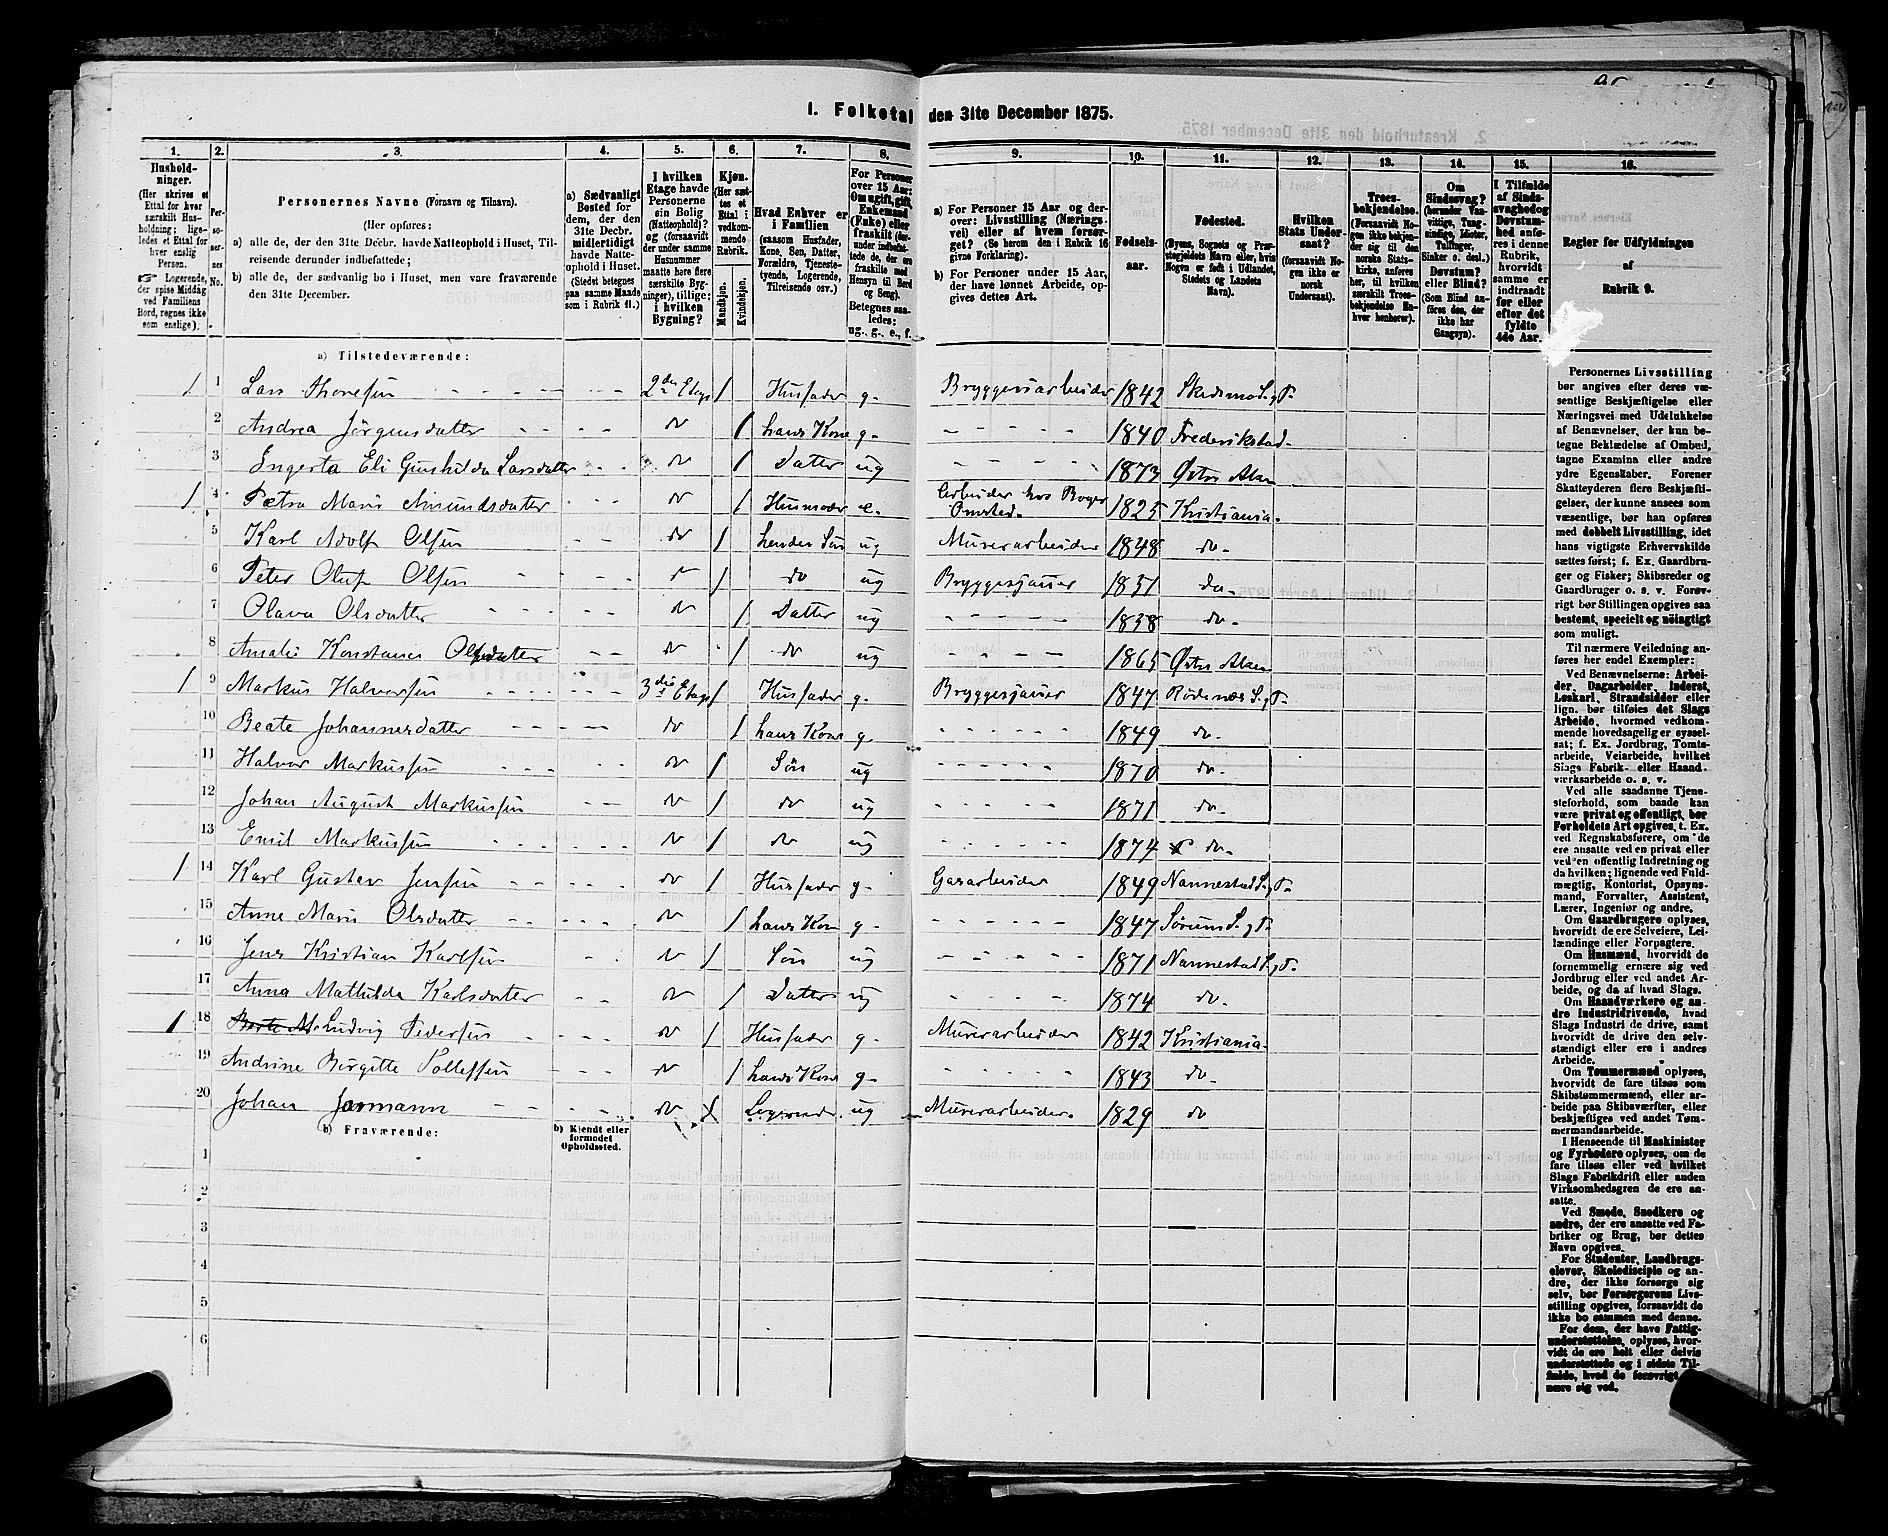 1. Folketal den 31te December 1875.
1. 2. 3. 4. 5. 6. 7. 8. 9. 10. 11. 12. 13. 14. 15. 16.
Husholdninger. (Her skrives et Ettal for hver særskilt Husholdning; ligeledes et Ettal for hver enslig Person. Logerende, der spise Middag ved Familiens Bord, regnes ikke som enslige).
Personernes No.
Personernes Navne (Fornavn og Tilnavn).
(Her opføres:
a) alle de, der den 31te Decbr. havde Natteophold i Huset, Tilreisende derunder indbefattede;
b) alle de, der sædvanlig bo i Huset, men vare fraværende den 31te December.
a) Sædvanligt Bosted for dem, der den 31te Decbr. midlertidigt havde Natteophold i Huset. (Stedet betegnes paa samme Maade som i Rubrik 11.)
I hvilken Etage havde Personerne sin Bolig (Natteophold)? og (forsaavidt der under samme Husnummer maatte høre flere særskilte Bygninger), tillige: i hvilken Bygning?
Kjøn. (Her sættes et Ettal i vedkommende Rubrik.
Mandkjøn. Kvindekjøn.
Hvad Enhver er i Familien (saasom Husfader, Kone, Søn, Datter, Forældre, Tjenestetyende, Logerende, Tilreisende osv.)
For Personer over 15 Aar: Om ugift, gift, Enkemand (Enke) eller fraskilt
Betegnes saaledes: ug., g., e., f.
a) For Personer 15 Aar og derover: Livsstilling (Næringsvei) eller af hvem forsørget? (Se herom den i Rubrik 16 givne Forklaring).
b) For Personer under 15 Aar, der have lønnet Arbeide, opgives dettes Art.
Fødselsaar.
Fødested. (Byens, Sognets og Præstegjeldets Navn eller, hvis Nogen er født i Udlandet, Stedets og Landets Navn).
Hvilken Stats Undersaat? (forsaavidt Nogen ikke er norsk Undersaat).
Troesbekjendelse. (Forsaavidt Nogen ikke bekjender sig til den norske Statskirke, anføres her, til hvilken særskilt Troesbekjendelse Enhver henhører).
Om Sindssvag? (herunder Vanvittige, Tungsindige, Idioter, Tullinger, Sinker o. desl.) Døvstum? eller Blind? (Som Blind anføres den, der ikke har Gangsyn).
I Tilfælde af Sindssvaghed og Døvstumhed anføres i denne Rubrik, hvorvidt samme er indtraadt før eller efter det fyldte 4de Aar.
Regler for Udfyldningen af Rubrik 9.
a) Tilstedeværende:
1 1 Lars Thoresen 2den Etage 1 Husfader g. Bryggeriarbeider 1842 Skedsmo S. g P.
2 Andrea Jörgensdatter do 1 hans Kone g. 1840 Frederikstad.
3 Engerta Eli Gunhilda Larsdatter do 1 Datter ug 1873 Østre Aker
1 4 Petra Marie Amundsdatter do 1 Husmoder e. Arbeider hos Omsted. 1825 Kristiania.
5 Karl Adolf Olsen do 1 hendes Søn ug Murerarbeider 1848 do.
6 Peter Oluf Olsen do 1 do ug Bryggesjauer 1851 do.
7 Olava Olsdatter do 1 Datter ug 1858 do.
8 Amalie Konstance Olsdatter do 1 do ug 1865 Østre Aker
1 9 Markus Halvorsen 3die Etage 1 Husfader g. Bryggesjauer 1847 Rödenæs S. g P.
10 Beate Johannesdatter do 1 hans Kone g. 1849 do.
11 Halvor Markussen do 1 Søn ug 1870 do.
12 Johan August Markussen do 1 do ug 1871 do.
13 Emil Markussen do 1 do ug 1874 do.
1 14 Karl Gustav Jensen do 1 Husfader g. Gasarbeider 1849 Nannestad S. g P.
15 Anne Marie Olsdatter do 1 hans Kone g. 1847 Sörum S. g P.
16 Jens Kristian Karlsen do 1 Søn ug 1871 Nannestad S. g P.
17 Anna Mathilda Karlsdatter do 1 Datter ug 1874 do.
1 18 Ludvig Pedersen do 1 Husfader g. Murerarbeider 1842 Kristiania.
19 Andrine Birgitte Tollefsen do 1 hans Kone g. 1843 do.
20 Johan Jormann do 1 Logerende ug Murerarbeider. 1829 do
b) Fraværende:
b) Kjendt eller formodet Opholdssted.
1
2
3
4
5
6
Personernes Livsstilling
bør angives efter deres væ-
sentlige Beskjæftigelse eller
Næringsvei med Udelukkelse
af Benævnelser, der kun be-
tegne Beklædelse af Ombud,
tagne Examina eller andre
ydre Egenskaber. Forener
Skatteyderen flere Beskjæfti-
gelser, der kunne ansees som
væsentlige, bør han opføres
med dobbelt Livsstilling, idet
hans vigtigste Erhvervskilde
sættes først; f. Ex. Gaardbru-
ger og Fisker; Skibsreder og
Gaardbruger o. s. v. Forøv-
rigt bør Stillingen opgives saa
bestemt, specielt og nøiagtigt
som muligt.
Til nærmere Veiledning an-
føres her endel Exempler:
Ved Benævnelserne: Arbei-
der, Dagarbeider, Inderst,
Løskarl, Strandsidder eller
lign. bør tilføies det Slags
Arbeide, hvormed vedkom-
mende hovedsagelig er syssel-
sat; f. Ex. Jordbrug, Tomte-
arbeide, Veiarbeide, hvilket
Slags Fabrik- eller Haand-
værksarbeide o. s. v.
Ved alle saadanne Tjene-
steforhold, som baade kan
være privat og offentligt, bør
Forholdets Art opgives, t. Ex.
ved Regnskabsførere, om de
ere ansatte ved en privat eller
ved en offentlig Indretning og
da hvilken; lignende ved Fuld-
mægtig, Kontorist, Opsyns-
mand, Forvalter, Assistent,
Lærer, Ingeniør og andre.
Om Gaardbrugere oplyses,
hvorvidt de ere Selveiere, Lei-
lændinge eller Forpagtere.
Om Husmænd, hvorvidt de
fornemmelig ernære sig ved
Jordbrug eller ved andet Ar-
beide, og da af hvad Slags.
Om Haandværkere og an-
dre Industridrivende, hvad
Slags Industri de drive, samt
hvorvidt de drive den selv-
stændigt eller ere i andres
Arbeide.
Om Tømmermænd oplyses,
hvorvidt de fare tilsøs som
Skibstømmermænd, eller ar-
beide paa Skibsværfter, eller
beskjæftiges ved andet Tøm-
mermandsarbeide.
I Henseende til Maskinister
og Fyrbødere oplyses, om de
fare tilsøs eller ved hvilket
Slags Fabrikdrift eller anden
Virksomhedsgren de ere an-
satte.
Ved Smede, Snedkere og
andre, der ere ansatte ved Fa-
briker og Brug, bør dettes
Navn opgives.
For Studenter, Landbrugs-
elever, Skoledisciple og an-
dre, der ikke forsørge sig
selv, bør Forsørgerens Livs-
stilling opgives, forsaavidt de
ikke bo sammen med denne.
For dem, der have Fattig-
understøttelse, oplyses, hvor-
vidt de ere helt eller delvis
understøttede og i sidste Til-
fælde, hvad de forøvrigt
nære sig ved.